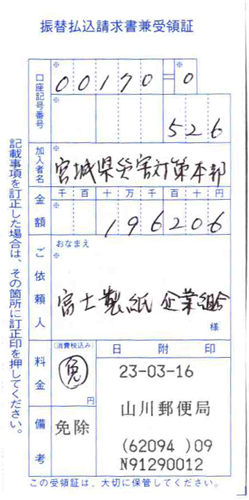 振替払込請求書兼受領証
口座記号番号
※
00170-0
526
加入者名
※
宮城県災害対策本部
金額
千 百 十 万 千 百 十 円
※
196206
ご依頼人
おなまえ
※
富士製紙 企業組合
様
料金
(消費税込み)
免
円
備考
免除
日附印
23-03-16
山川郵便局
(62094 )09
N91290012
記載事項を訂正した場合は、その箇所に訂正印を押してください。
この受領証は、大切に保管してください。